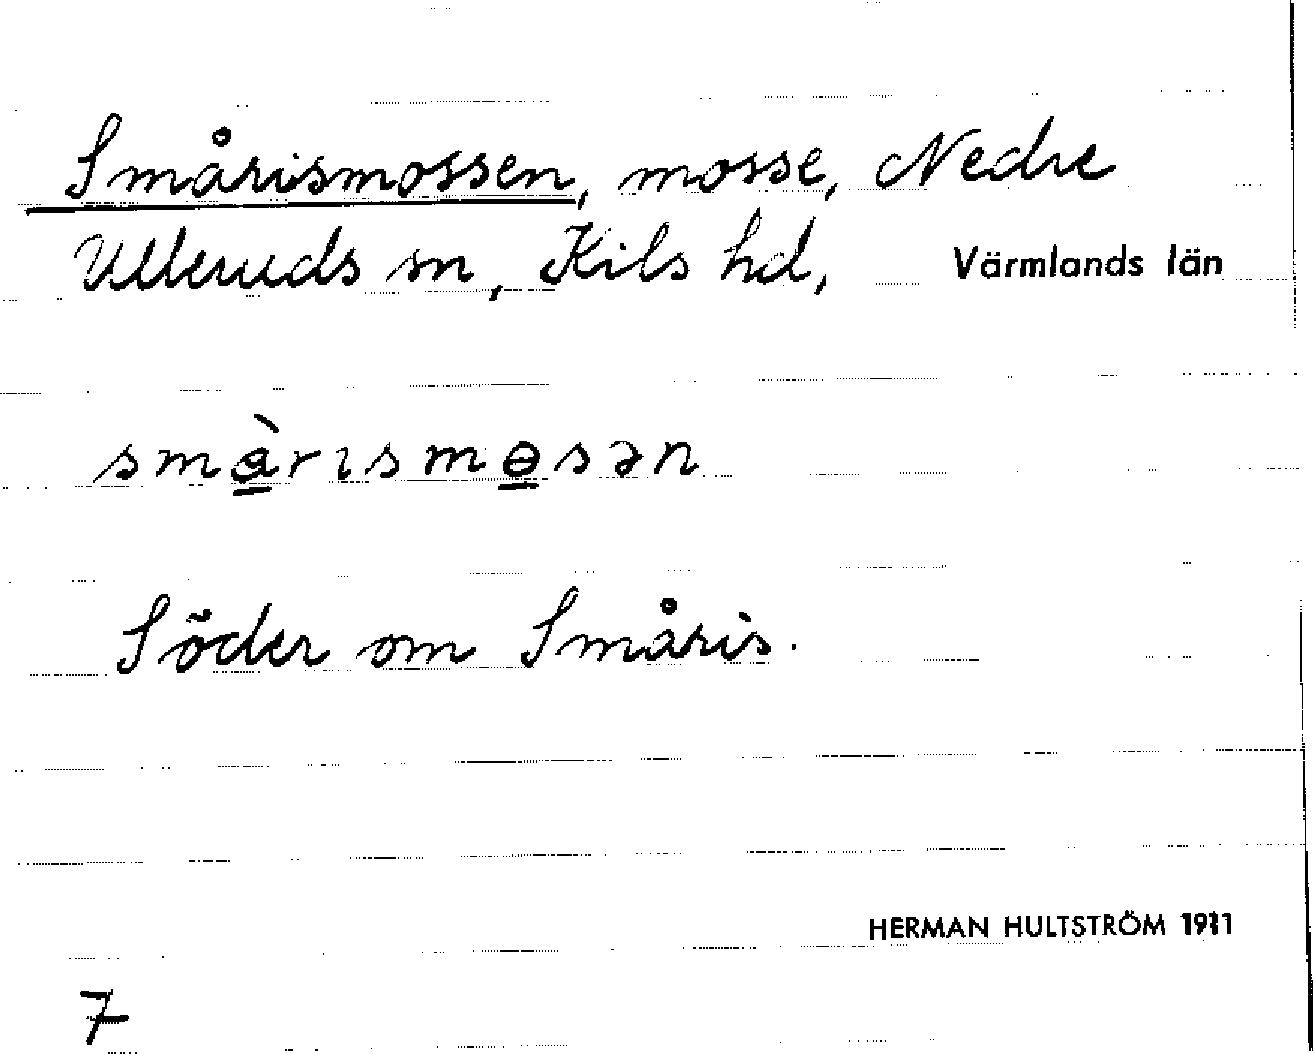 Smårismossen, mosse, Nedre
Ulleruds sn, Kils hd, Värmlands län
smàrısmɵsən
Söder om Småris.
HERMAN HULTSTRÖM 1911
7